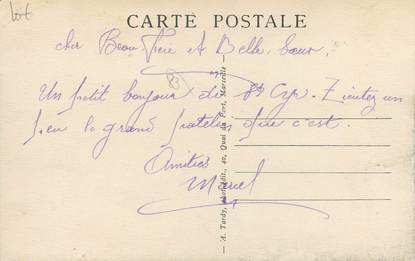 lot
CARTE POSTALE
cher Beau-Père et Belle-Sœur,
83
Un petit bonjour de St Cyr. Zieutez un
peu le grand que c'est.
Amitiés
Marcel
A. Tardy, 40, Quai du Port, Marseille